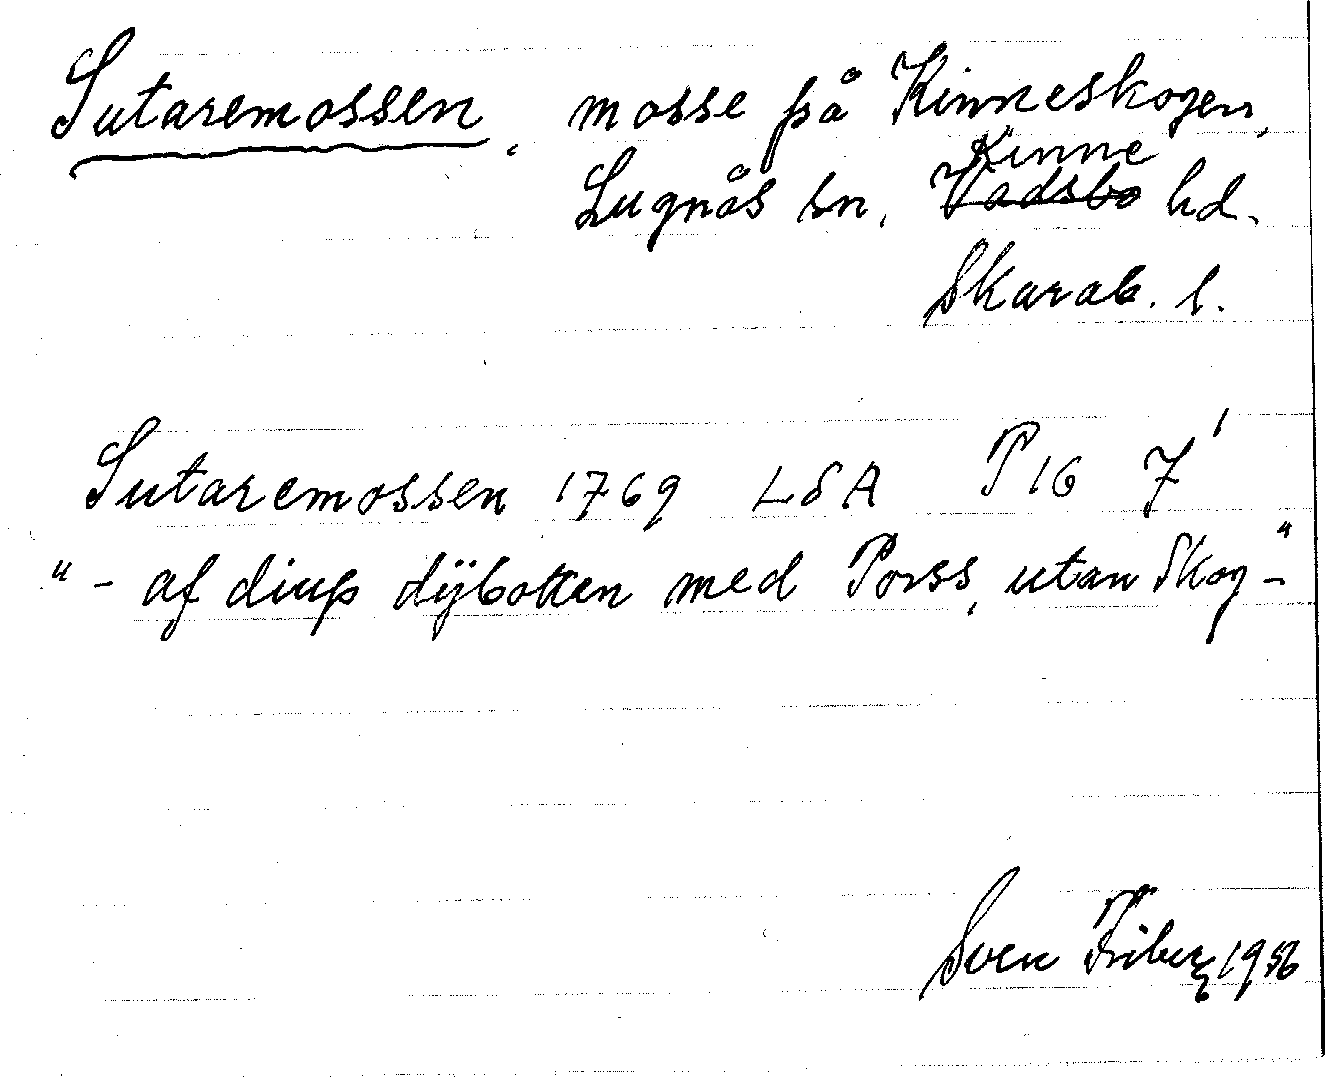 Sutaremossen, mosse på Kinneskogen,
Kinne
Lugnås sn, Vadsbo hd.
Skarab. l.
Sutaremossen 1769 LSA P16 7¹
"- af diup dÿbotten med Porss, utan Skog-"
Sven Friberg 1956